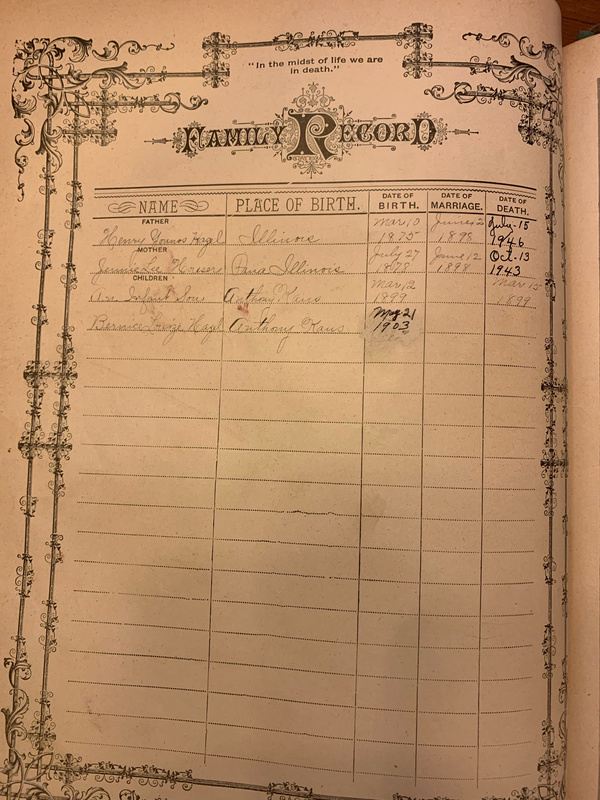 "In the midst of life we are
in death."
FAMILY RECORD
NAME PLACE OF BIRTH. DATE OF BIRTH. DATE OF MARRIAGE. DATE OF DEATH.
FATHER
Mar, 10 June 12 July-15
Henry Hagl Illinois 1875 1898 1946
MOTHER
July 27 June 12 Oct-13
Jennie Lee Pana Illinois 1878 1898 1943
CHILDREN
Mar, 12 Mar 15
An Infant Son Anthony Kans 1899 1899
May 21
Bernice Hagl Anthony Kans 1903